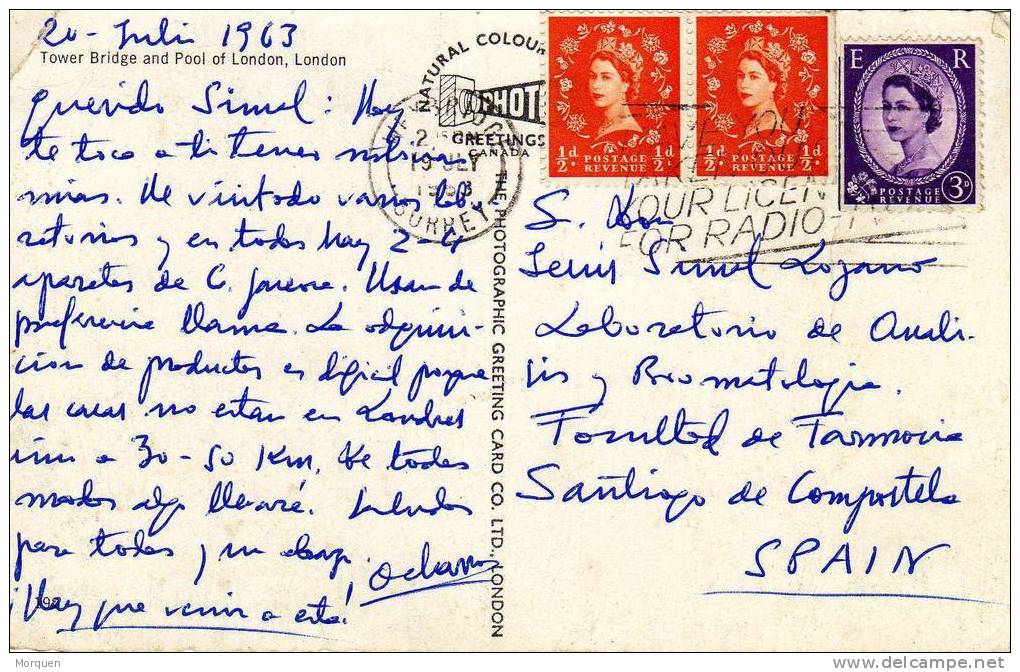 20 - Julio 1963
Tower Bridge and Pool of London, London
Querido Simal: Hoy
te toca a ti tener
mias. He visitado varios labo-
ratorios y en todos hay 2-4
aparatos de C. gaseosa. Usan de
preferencia llama. La adquisi-
cion de productos es dificil porque
las casas no estan en Londres
sino a 30-50 Km. De todos
modos algo llevaré. Saludos
para todos y un abrazo
¡Hay que venir a esta!
NATURAL COLOUR
PHOTO
GREETINGS
CANADA
THE PHOTOGRAPHIC GREETING CARD CO. LTD., LONDON
WEYBRIDGE
19 JLY
1963
SURREY
1/2d POSTAGE REVENUE 1/2d
1/2d POSTAGE REVENUE 1/2d
E R
POSTAGE REVENUE 3D
YOUR LICENCE
FOR RADIO-TV
S. Don
Simal Lozano
Laboratorio de Anali-
sis y Bromatologia.
Facultad de Farmacia
Santiago de Compostela
SPAIN
Morquen
www.delcampe.net